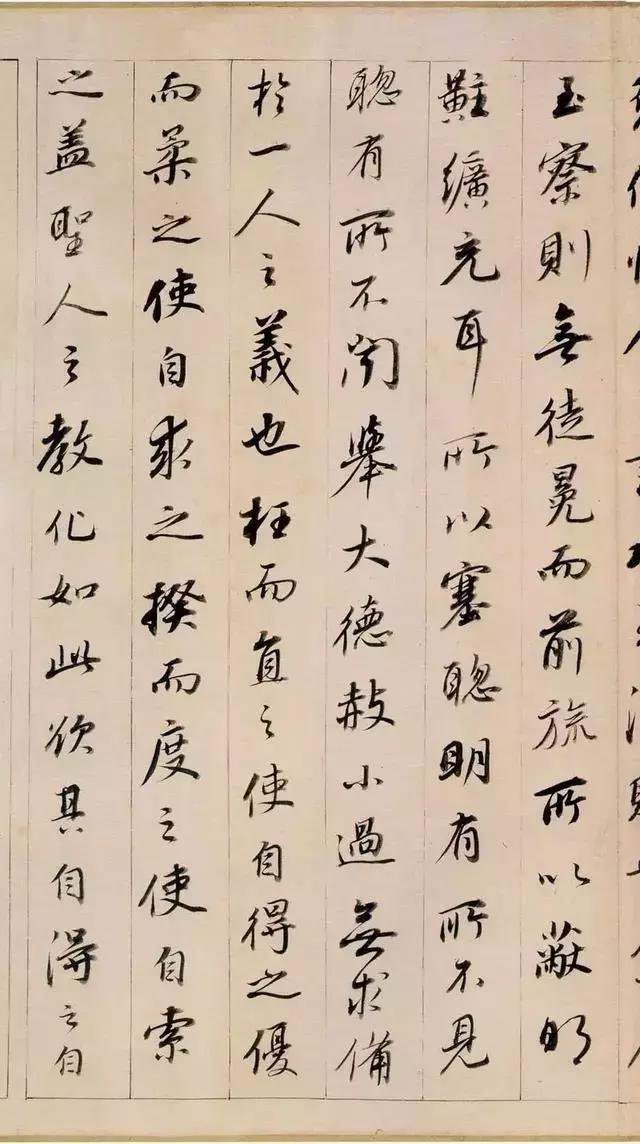 至察則無徒冕而前旒所以蔽明
黈纊充耳所以塞聰明有所不見
聰有所不聞舉大德赦小過無求備
於一人之義也枉而直之使自得之優
而柔之使自求之揆而度之使自索
之盖聖人之教化如此欲其自得之自